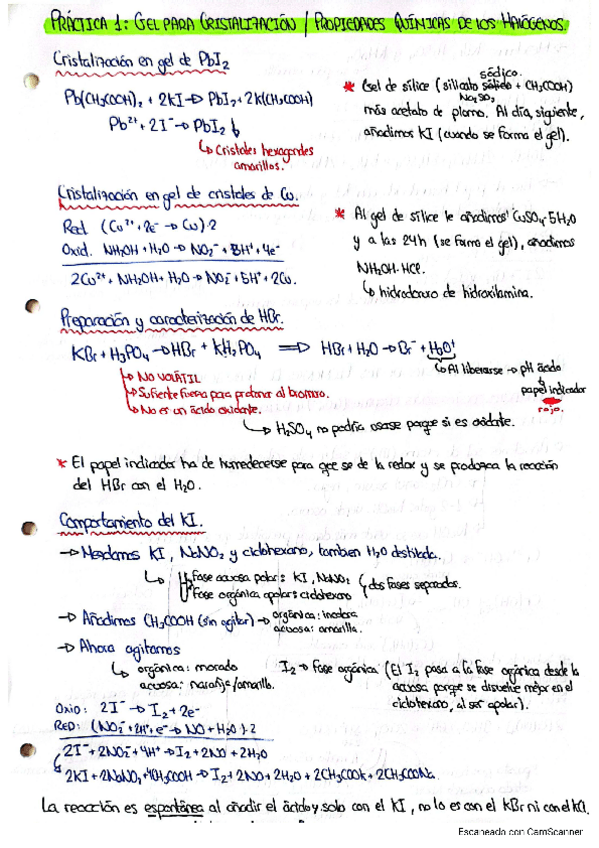 PRÁCTICA 1: GEL PARA CRISTALIZACIÓN / PROPIEDADES QUÍMICAS DE LOS HALÓGENOS.
Cristalización en gel de PbI2
Pb(CH3COOH)2 + 2KI → PbI2 + 2K(CH3COOH)
Pb2+ + 2I- → PbI2 ↓
↳ Cristales hexagonales
amarillos.
* Gel de sílice (silicato sódico + CH3COOH)
más acetato de plomo. Al día, siguiente,
añadimos KI (cuando se forma el gel).
Cristalización en gel de cristales de Cu.
Red (Cu2+ + 2e- → Cu)·2
Oxid. NH2OH + H2O → NO2- + 5H+ + 4e-
2Cu2+ + NH2OH + H2O → NO2- + 5H+ + 2Cu.
* Al gel de sílice le añadimos CuSO4·5H2O
y a las 24h (se forma el gel), añadimos
NH2OH·HCl.
↳ hidrocloruro de hidroxilamina.
Preparación y caracterización de HBr.
KBr + H3PO4 → HBr + KH2PO4 ⟹ HBr + H2O → Br- + H3O+
↳ Al liberarse → pH ácido
papel indicador
rojo.
↳ NO VOLÁTIL
↳ Suficiente fuerza para protonar al bromuro.
↳ No es un ácido oxidante.
↳ H2SO4 no podría usarse porque si es oxidante.
* El papel indicador ha de humedecerse para que se de la redox y se produzca la reacción
del HBr con el H2O.
Comportamiento del KI.
→ Mezclamos KI, NaNO2 y ciclohexano, tambien H2O destilada.
↳ Fase acuosa polar: KI, NaNO2
Fase orgánica apolar: ciclohexano
dos fases separadas.
→ Añadimos CH3COOH (sin agitar) → orgánica: incolora
acuosa: amarilla.
→ Ahora agitamos
↳ orgánica: morado
acuosa: naranja/amarillo.
I2 → fase orgánica (El I2 pasa a la fase orgánica desde la
acuosa porque se disuelve mejor en el
ciclohexano, al ser apolar).
OXID: 2I- → I2 + 2e-
RED: (NO2- + 2H+ + e- → NO + H2O)·2
2I- + 2NO2- + 4H+ → I2 + 2NO + 2H2O
↳ 2KI + 2NaNO2 + 4CH3COOH → I2 + 2NO + 2H2O + 2CH3COOK + 2CH3COONa.
La reacción es espontánea al añadir el ácido y solo con el KI, no lo es con el KBr ni con el KCl.
Escaneado con CamScanner